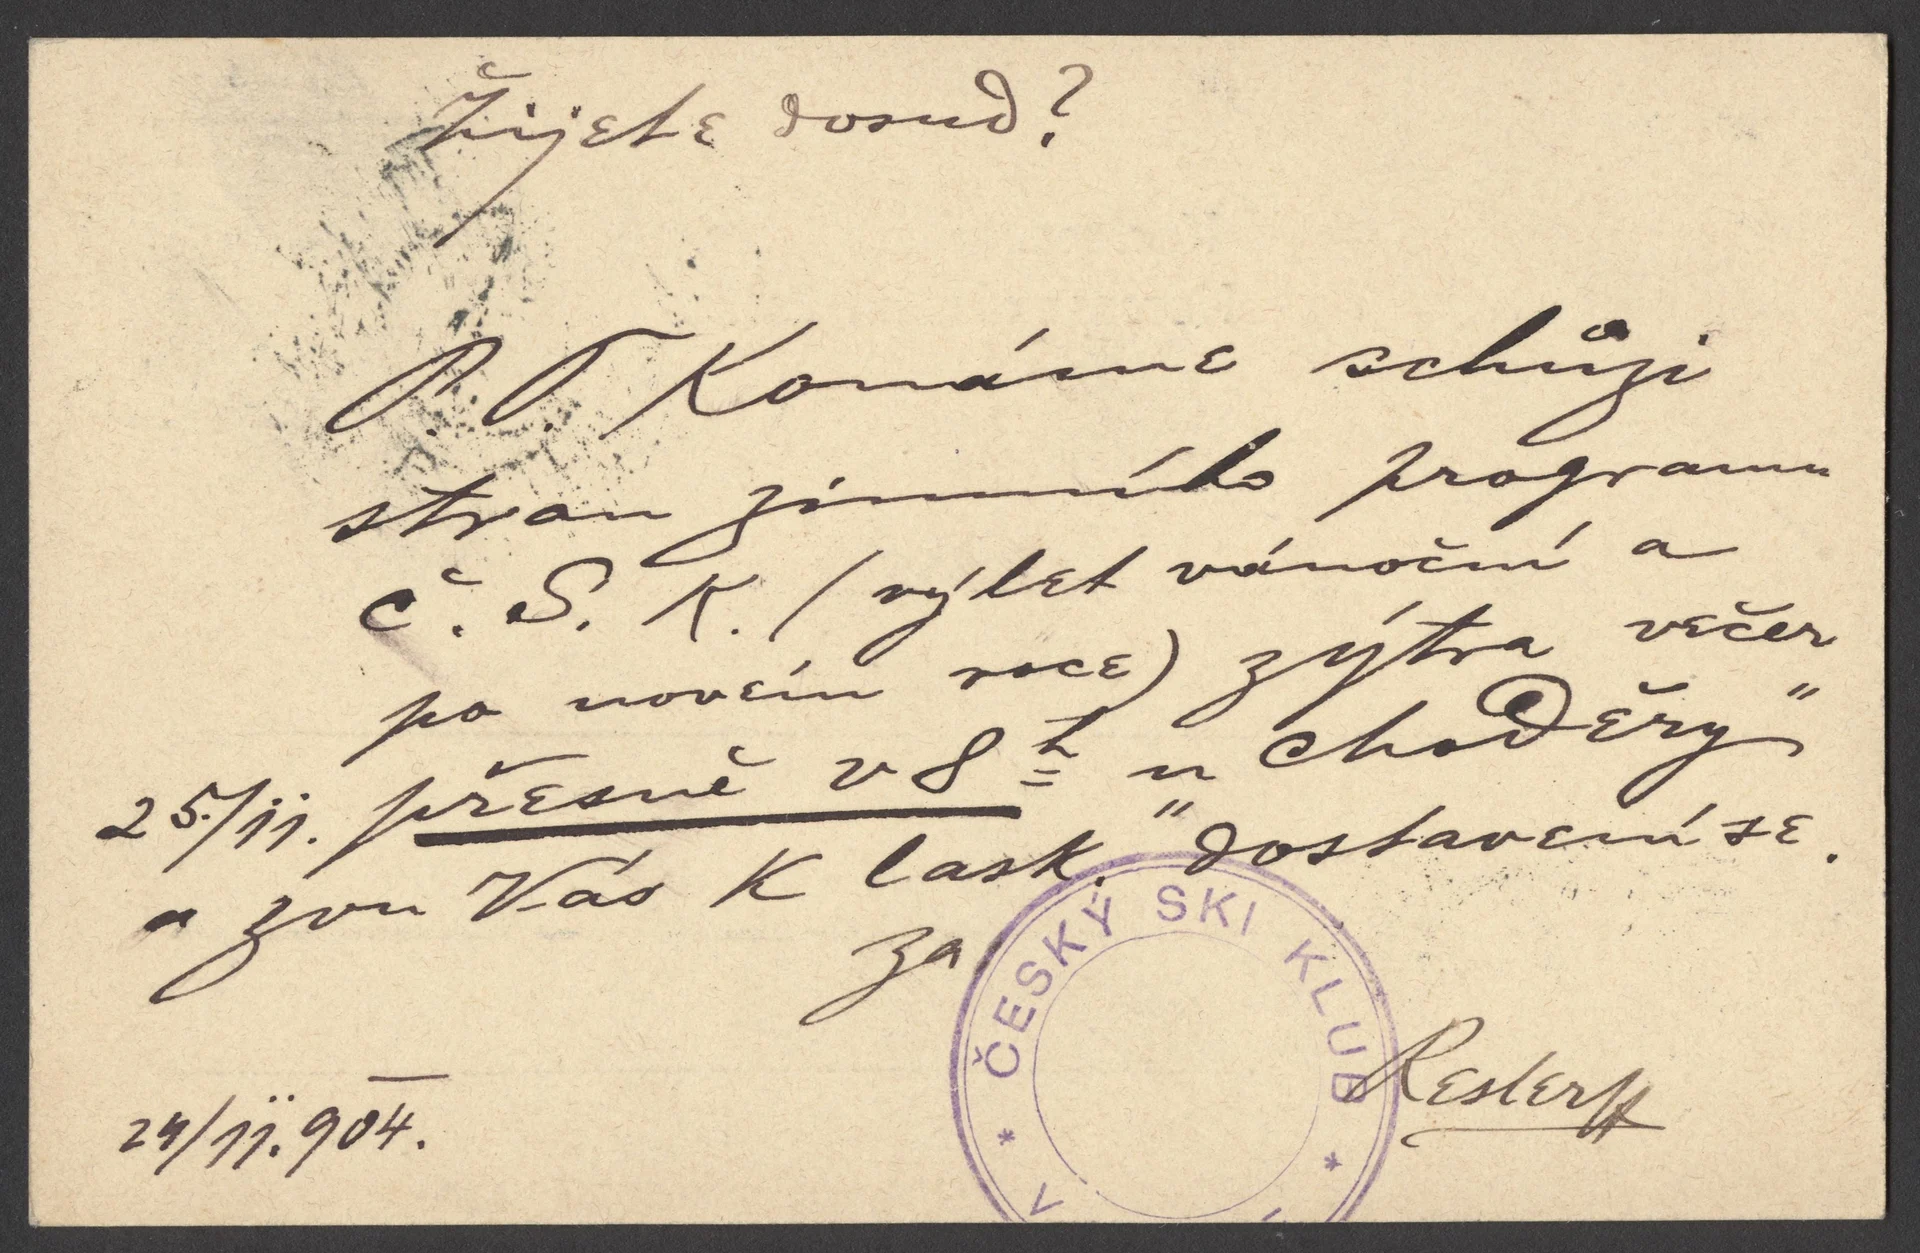 Žijete dosud?
P. T. Konáme schůzi
stran zimního programu
Č. S. K. (výlet vánoční a
po novém roce) zýtra večer
25./11. přesně v 8h u „Choděry“
a zvu Vás k lask. dostavení se.
za
ČESKÝ SKI KLUB
V
24/11. 904.